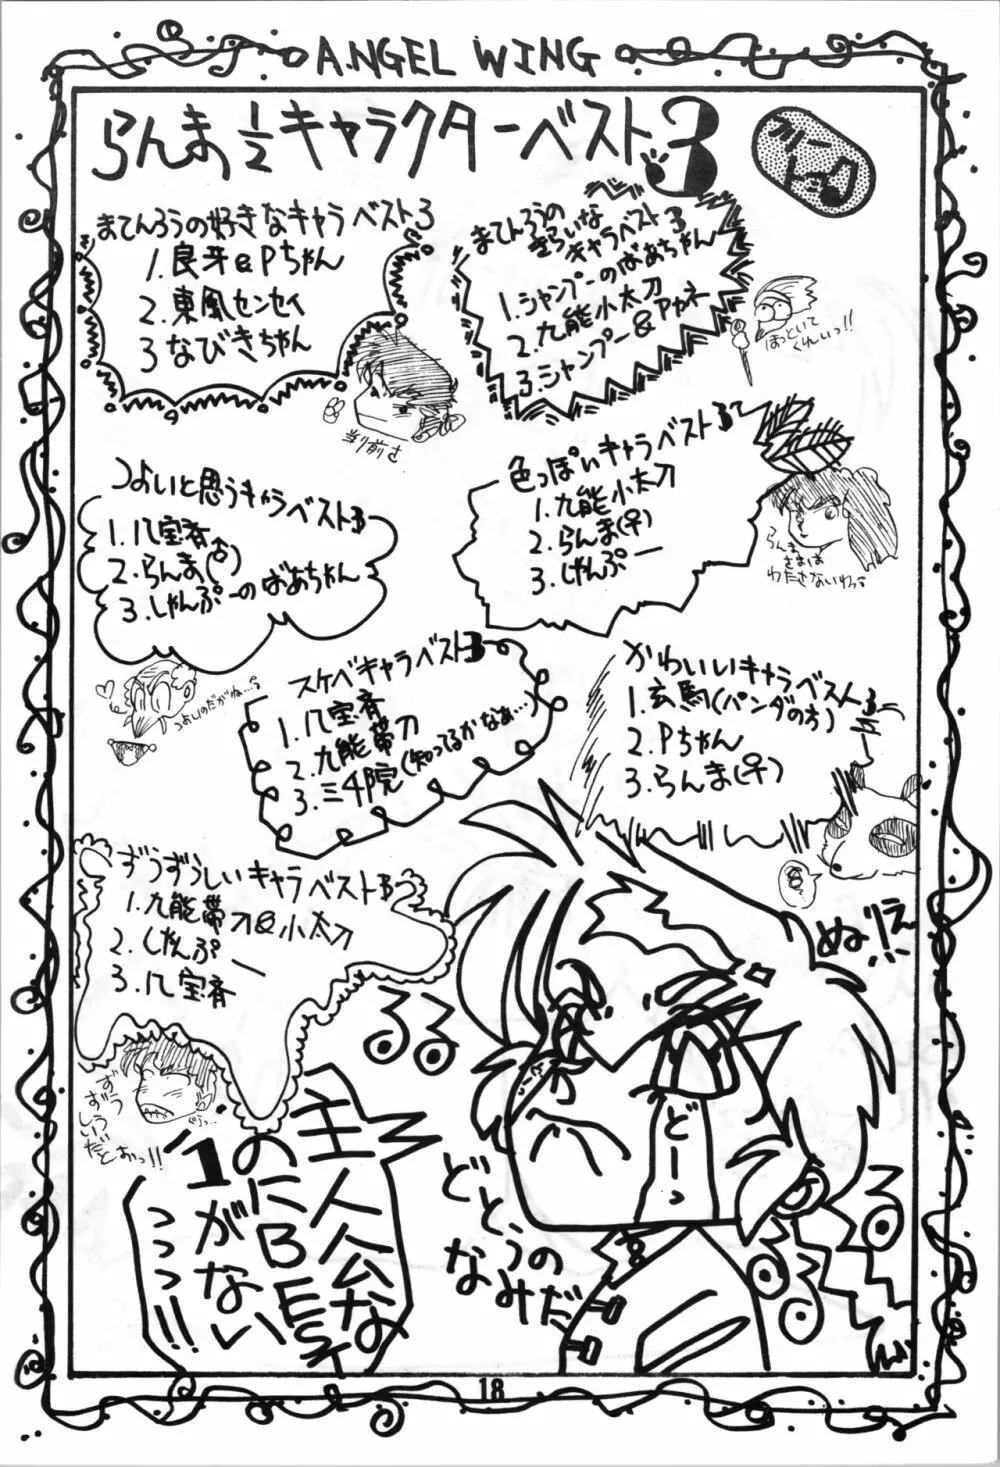 A.NGEL WING
らんま½キャラクターベスト3
まてんろうの好きなキャラベスト3
1.良牙&Pちゃん
2.東風センセイ
3 なびきちゃん
当り前さ
まてんろうの
きらいな
キャラベスト3
1.シャンプーのばあちゃん
2.九能小太刀
3.シャンプー&アカネ
ほっといて
くれいっ!!
つよいと思うキャラベスト3
1.八宝斉
2.らんま(♂)
3.しゃんぷーのばあちゃん
つよいのだがね…
色っぽいキャラベスト3
1.九能小太刀
2.らんま(♀)
3.しゃんぷー
らんま
さまは
わたさないわっ
スケベキャラベスト3
1.八宝斉
2.九能帯刀
3.三千院(知ってるかなぁ…)
かわいいキャラベスト3
1.玄馬(パンダの方)
2.Pちゃん
3.らんま(♀)
ずうずうしいキャラベスト3
1.九能帯刀&小太刀
2.しゃんぷー
3.八宝斉
ずう
ずう
しい
だとおっ!!
ぬりえ!!
るる
どーっ
主人公な
のにBEST
1がない
っっっ!!
どとうの
なみだ
るるる
18